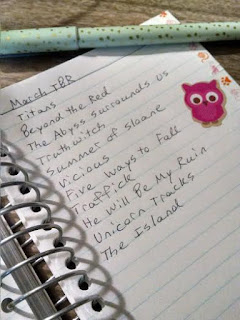 March TBR
Titans
Beyond the Red
The Abyss Surrounds us
Truthwitch
Summer of Sloane
Vicious
Five Ways to Fall
Traffick
He Will Be My Ruin
Unicorn Tracks
The Island